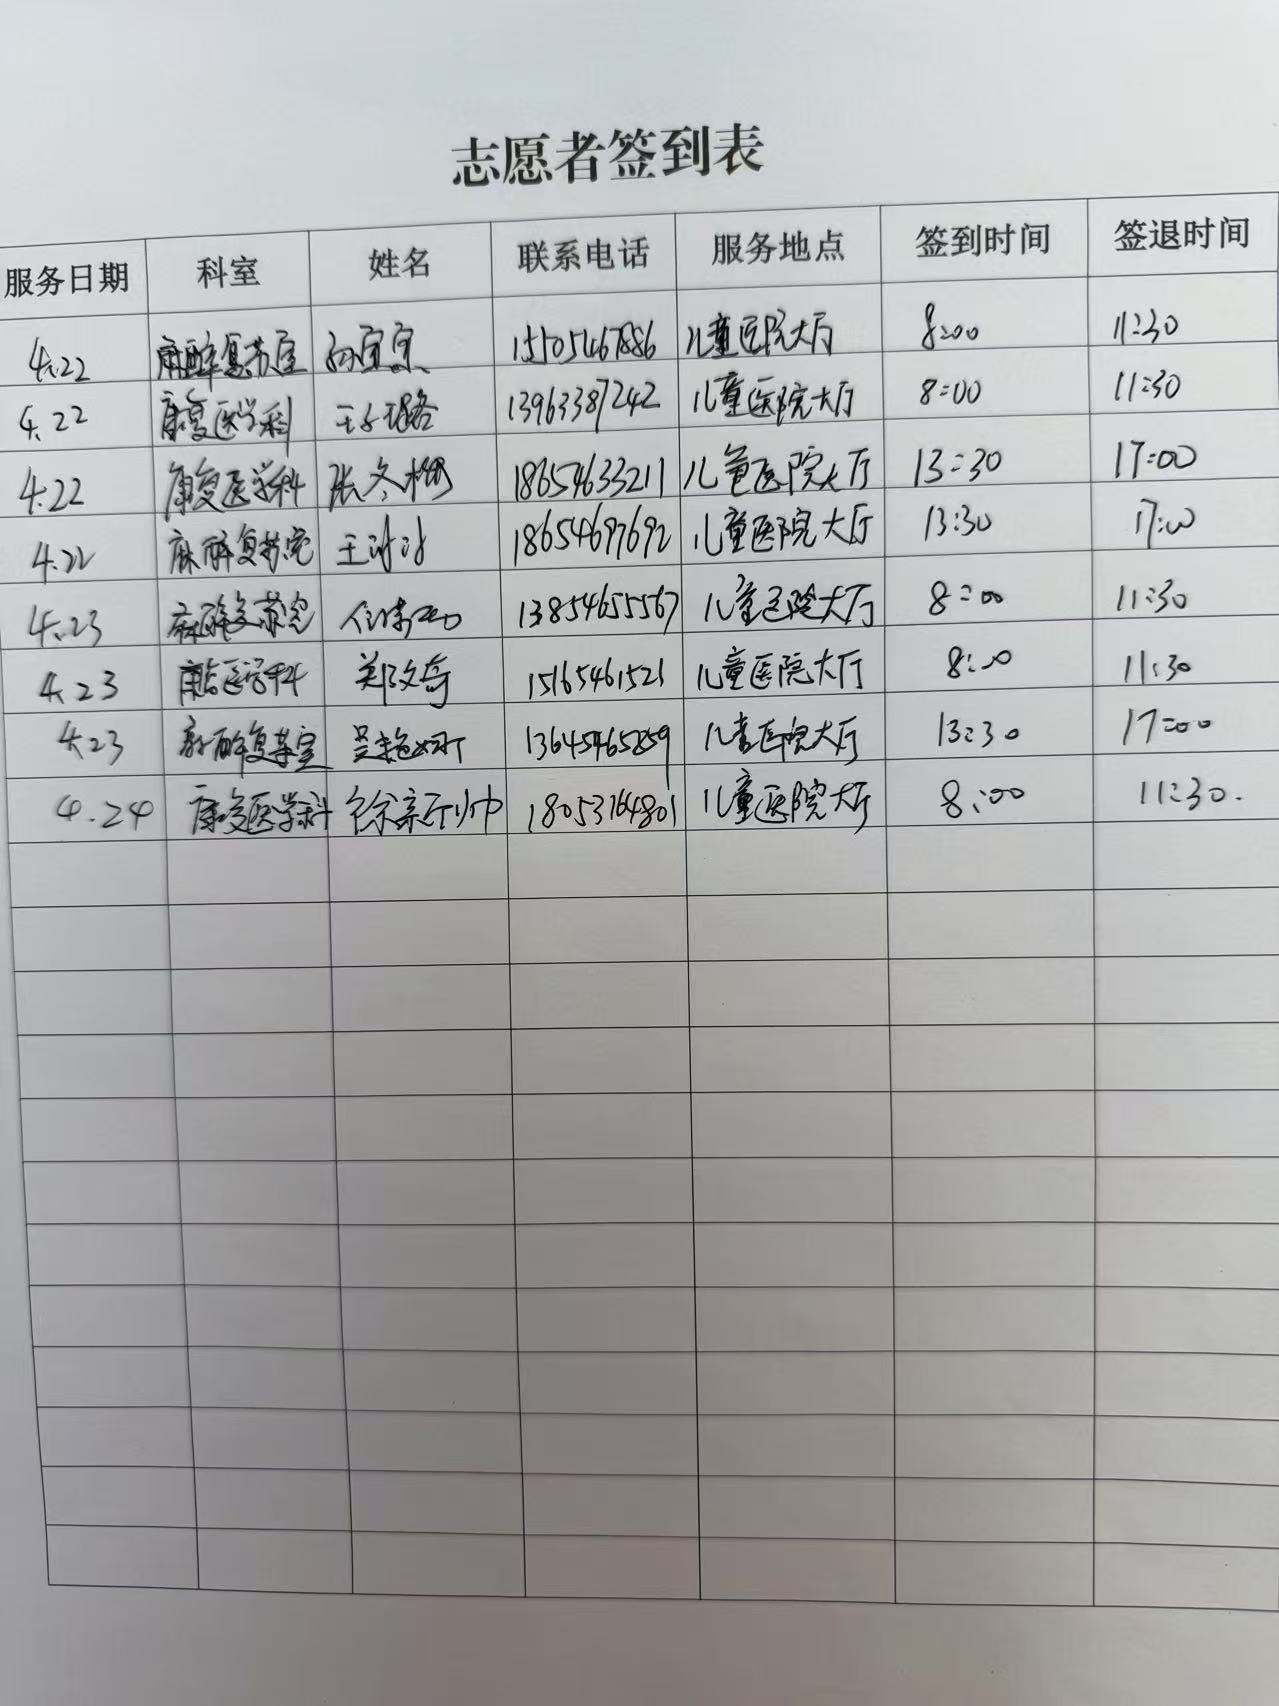 志愿者签到表
服务日期 科室 姓名 联系电话 服务地点 签到时间 签退时间
4.22 麻醉复苏室 孙宜宜 15105467886 儿童医院大厅 8:00 11:30
4.22 康复医学科 13963387242 儿童医院大厅 8:00 11:30
4.22 康复医学科 张冬梅 18654633211 儿童医院大厅 13:30 17:00
4.22 麻醉复苏室 王 18654697692 儿童医院大厅 13:30 17:00
4.23 麻醉复苏室 13854655567 儿童医院大厅 8:00 11:30
4.23 康复医学科 郑文奇 15165461521 儿童医院大厅 8:00 11:30
4.23 麻醉复苏室 13645465859 儿童医院大厅 13:30 17:00
4.24 康复医学科 徐 18053164801 儿童医院大厅 8:00 11:30.